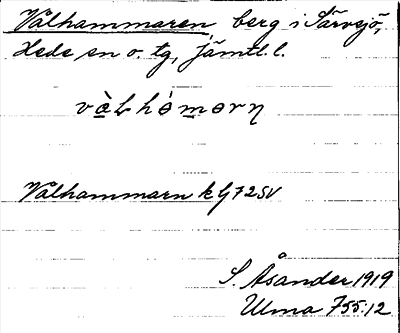 Vålhammaren, berg i Särvsjö,
Hede sn o. tg, Jämtl. l.
Vålhammarn k G 7 2 SV
S. Åsander 1919
Ulma 755:12